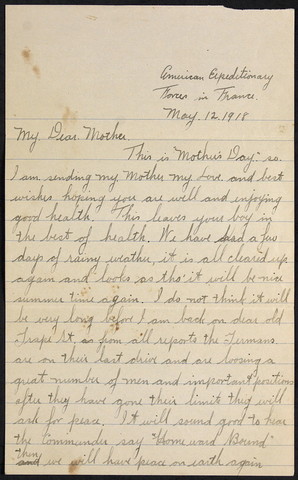 American Expeditionary
Forces in France.
May. 12. 1918
My Dear Mother.
This is Mother's Day. so.
I am sending my Mother my love and best
wishes hoping you are well and enjoying
good health. This leaves your boy in
the best of health. We have had a few
days of rainy weather, it is all cleared up
again and looks as tho' it will be nice
summer time again. I do not think it will
be very long before I am back on dear old
St, as from all reports the Germans
are on their last drive and are loosing a
great number of men and important positions
after they have gone their limit they will
ask for peace. It will sound good to hear
the Commander say "Homeward Bound"
then we will have peace on earth again